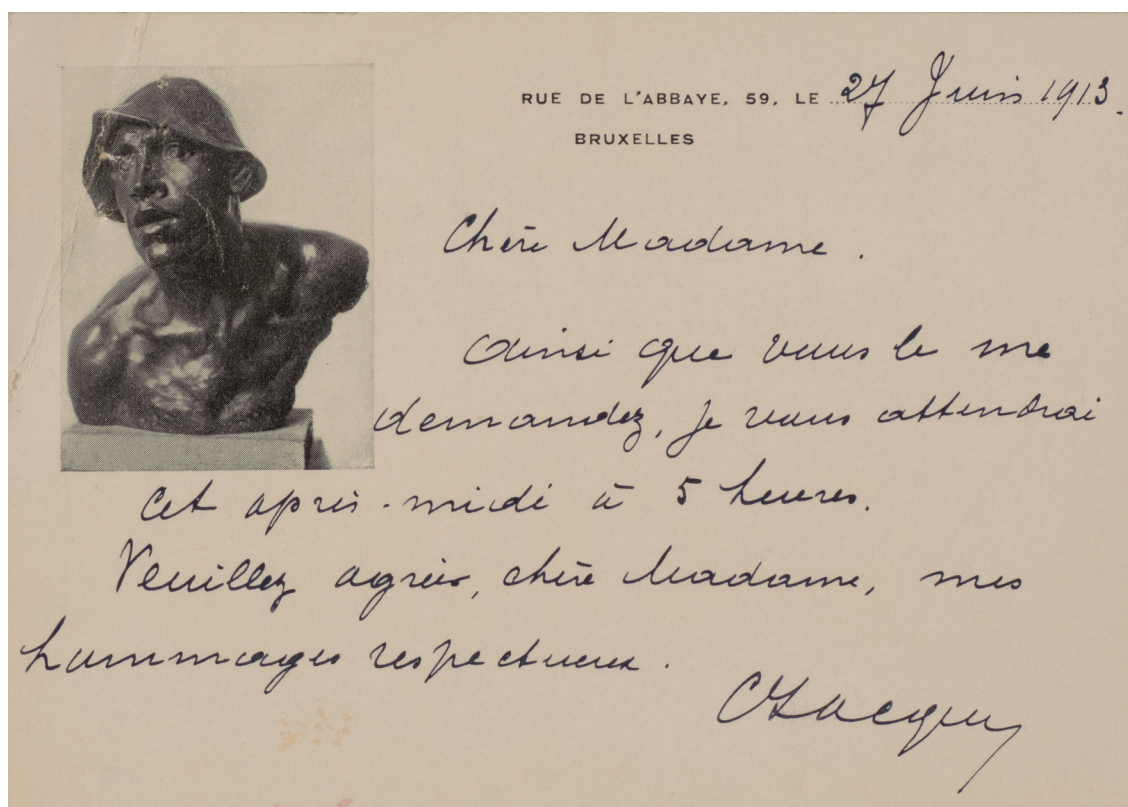 RUE DE L'ABBAYE, 59, LE 27 Juin 1913.
BRUXELLES
Chère Madame.
Ainsi que vous le me
demandez, je vous attendrai
cet après-midi à 5 heures.
Veuillez agréer, chère Madame, mes
hommages respectueux.